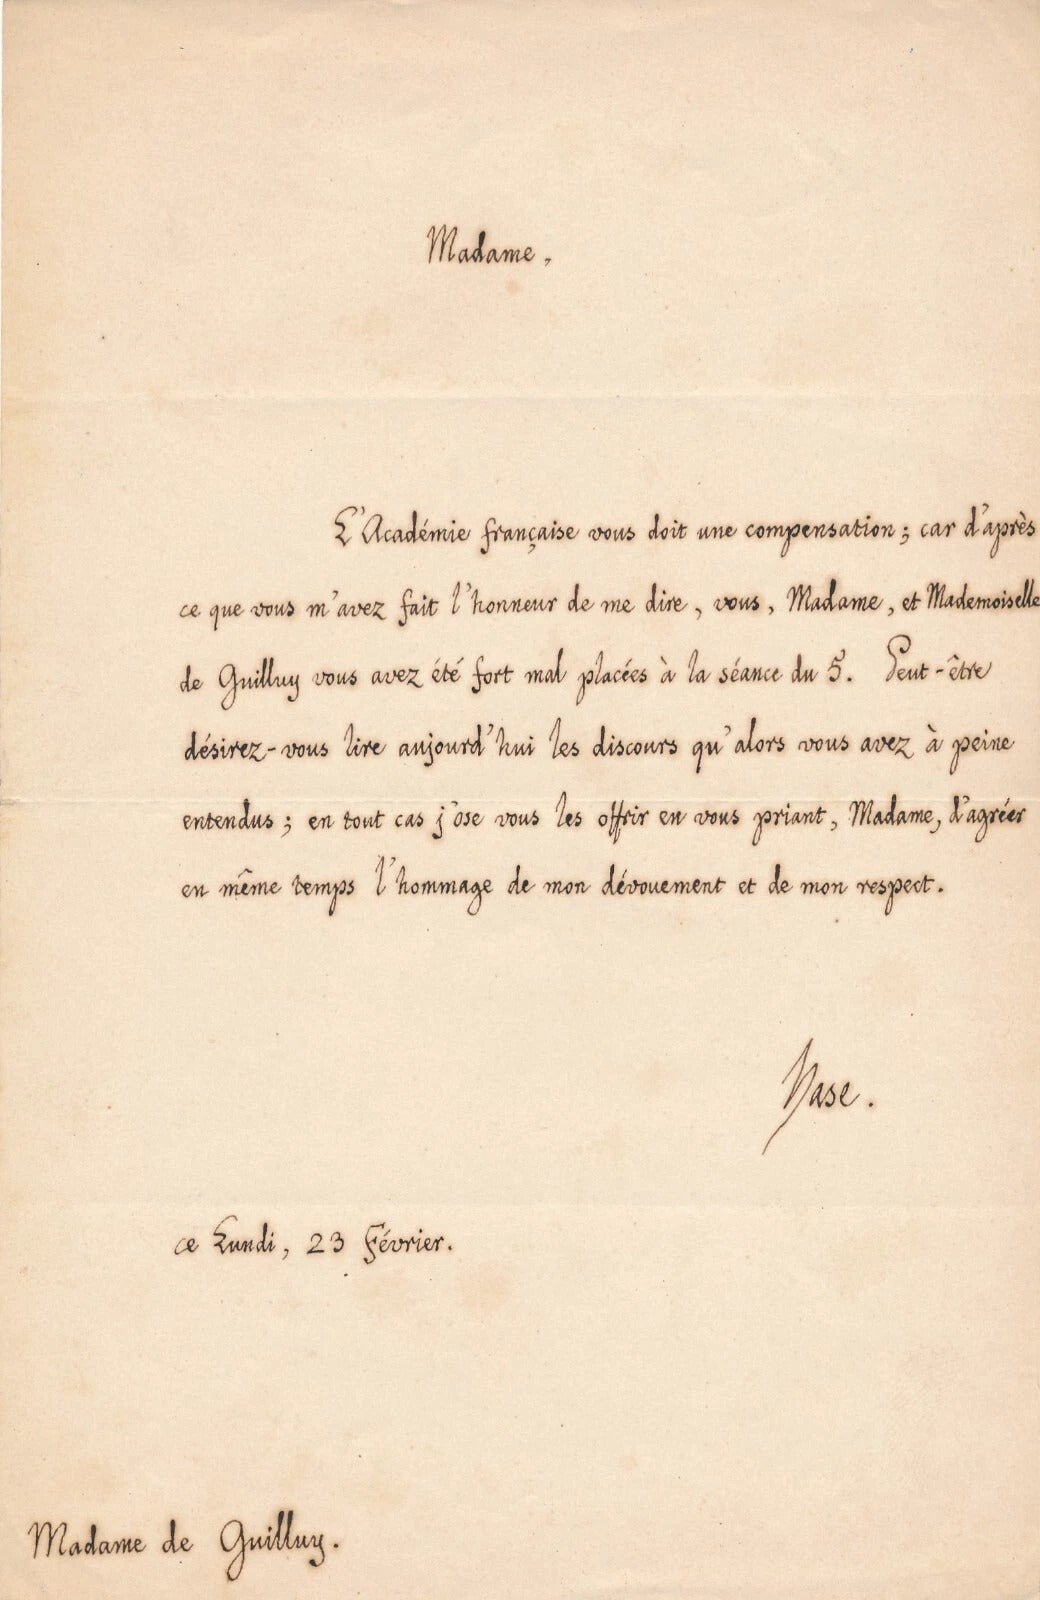 Madame,
L'Académie française vous doit une compensation; car d'après
ce que vous m'avez fait l'honneur de me dire, vous, Madame, et Mademoiselle
de Guilluy vous avez été fort mal placées à la séance du 5. Peut-être
désirez-vous lire aujourd'hui les discours qu'alors vous avez à peine
entendus; en tout cas j'ose vous les offrir en vous priant, Madame, d'agréer
en même temps l'hommage de mon dévouement et de mon respect.
Hase.
ce Lundi, 23 Février.
Madame de Guilluy.